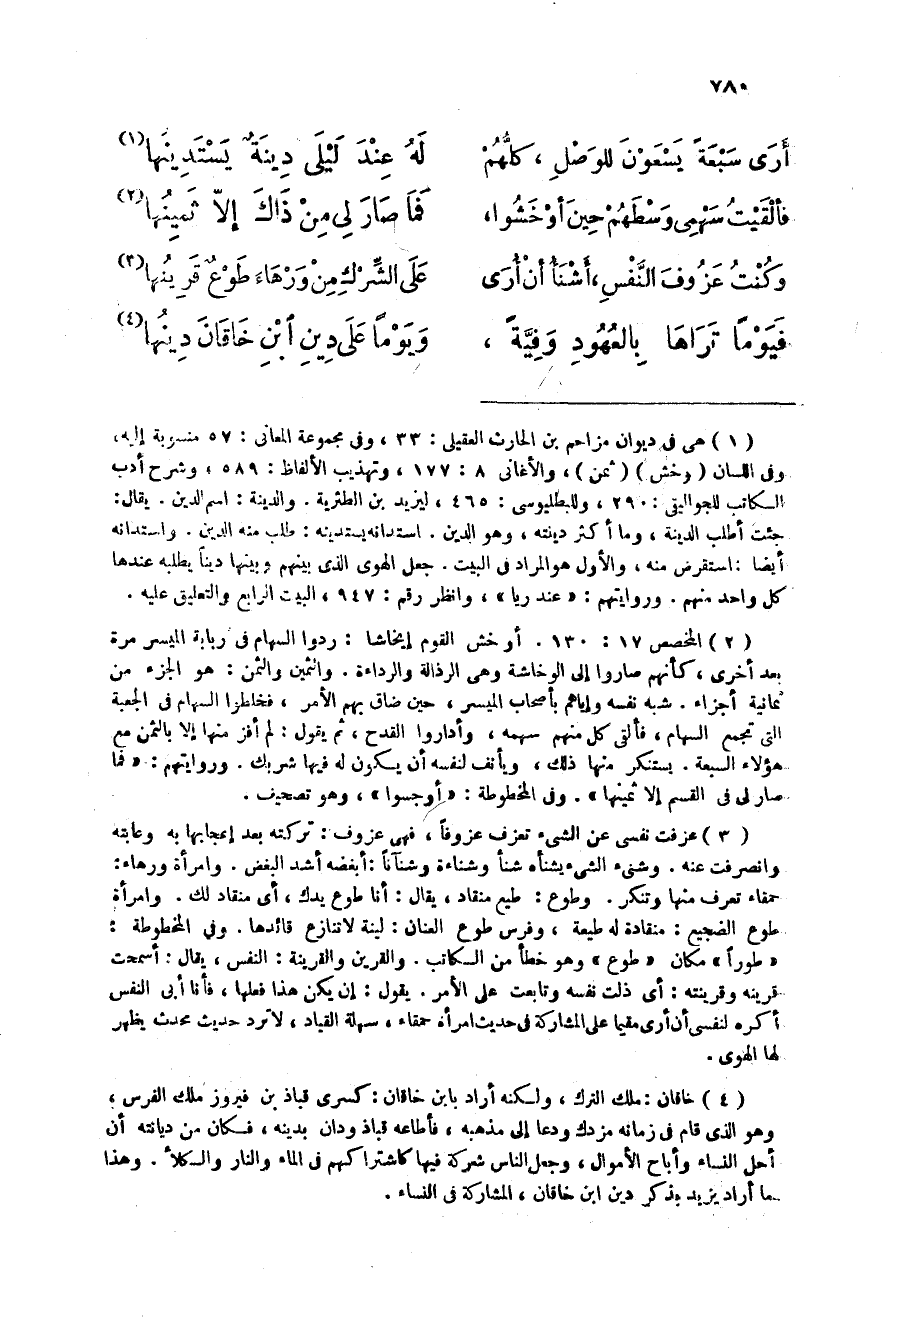 ٧٨٠
أَرَى سَبْعَةً يَسْعَوْنَ لِلوَصْلِ ، كلُّهُمْ لَهُ عِنْدَ لَيْلَى دِينَةٌ يَسْتَدِينُها(١)
فألْقَيْتُ سَهْمِى وَسْطَهُمْ حِينَ أوْخَشُوا، فَمَا صَارَ لِى مِنْ ذَاكَ إلاّ ثَمِينُها(٢)
وَكُنْتُ عَزُوفَ النَّفْسِ، أَشْنَأُ أنْ أُرَى عَلَى الشِّرْكِ مِنْ وَرْهَاءَ طَوْعٌ قَرِينُها(٣)
فَيَوْمًا تَرَاهَا بِالعُهُودِ وَفِيَّةً ، وَيَوْمًا عَلَى دِينِ ٱبْنِ خَاقَانَ دِينُها(٤)
( ١ ) هى فى ديوان مزاحم بن الحارث العقيلى : ٣٣ ، وفى مجموعة المعانى : ٥٧ منسوبة إليه،
وفى اللسان ( وخش ) ( ثمن ) ، والأغانى ٨ : ١٧٧ ، وتهذيب الألفاظ : ٥٨٩ ، وشرح أدب
الكاتب للجواليقى : ٢٩٠ ، وللبطليوسى : ٤٦٥ ، ليزيد بن الطثرية . والدينة : اسم الدين . يقال :
جئت أطلب الدينة ، وما أكثر دينته ، وهو الدين . استدانه يستدينه : طلب منه الدين . واستدانه
أيضا : استقرض منه ، والأول هو المراد فى البيت . جعل الهوى الذى بينهم وبينها ديناً يطلبه عندها
كل واحد منهم . وروايتهم : « عند ريا » ، وانظر رقم : ٩٤٧ ، البيت الرابع والتعليق عليه .
( ٢ ) المخصص ١٧ : ١٣٠ . أوخش القوم إيخاشا : ردوا السهام فى ربابة الميسر مرة
بعد أخرى ، كأنهم صاروا إلى الوخاشة وهى الرذالة والرداءة . والثمين والثمن : هو الجزء من
ثمانية أجزاء . شبه نفسه وإياهم بأصحاب الميسر ، حين ضاق بهم الأمر ، فخلطوا السهام فى الجعبة
التى تجمع السهام ، فألقى كل منهم سهمه ، وأداروا القدح ، ثم يقول : لم أفز منها إلا بالثمن مع
هؤلاء السبعة . يستنكر منها ذلك ، ويأنف لنفسه أن يكون له فيها شريك . وروايتهم : « فما
صار لى فى القسم إلا ثمينها » . وفى المخطوطة : « أوجسوا » ، وهو تصحيف .
( ٣ ) عزفت نفسى عن الشىء تعزف عزوفاً ، فهى عزوف : تركته بعد إعجابها به وعابته
وانصرفت عنه . وشنىء الشىء يشنأه شنأ وشناءة وشنآناً : أبغضه أشد البغض . وامرأة ورهاء :
حمقاء تعرف منها وتنكر . وطوع : طيع منقاد ، يقال : أنا طوع يدك ، أى منقاد لك . وامرأة
طوع الضجيع : منقادة له طيعة ، وفرس طوع العنان : لينة لا تنازع قائدها . وفي المخطوطة :
« طوراً » مكان « طوع » وهو خطأ من الكاتب . والقرين والقرينة : النفس ، يقال : أسمحت
قرينه وقرينته : أى ذلت نفسه وتابعت على الأمر . يقول : إن يكن هذا فعلها ، فأنا أبى النفس
أكره لنفسى أن أرى مقيما على المشاركة فى حديث امرأة حمقاء ، سهلة القياد ، لا ترد حديث محدث يظهر
لها الهوى .
( ٤ ) خاقان : ملك الترك ، ولكنه أراد بابن خاقان : كسرى قباذ بن فيروز ملك الفرس ،
وهو الذى قام فى زمانه مزدك ودعا إلى مذهبه ، فأطاعه قباذ ودان بدينه ، فكان من ديانته أن
أحل النساء وأباح الأموال ، وجعل الناس شركة فيها كاشتراكهم فى الماء والنار والكلأ . وهذا
ما أراد يزيد بذكر دين ابن خاقان ، المشاركة فى النساء .